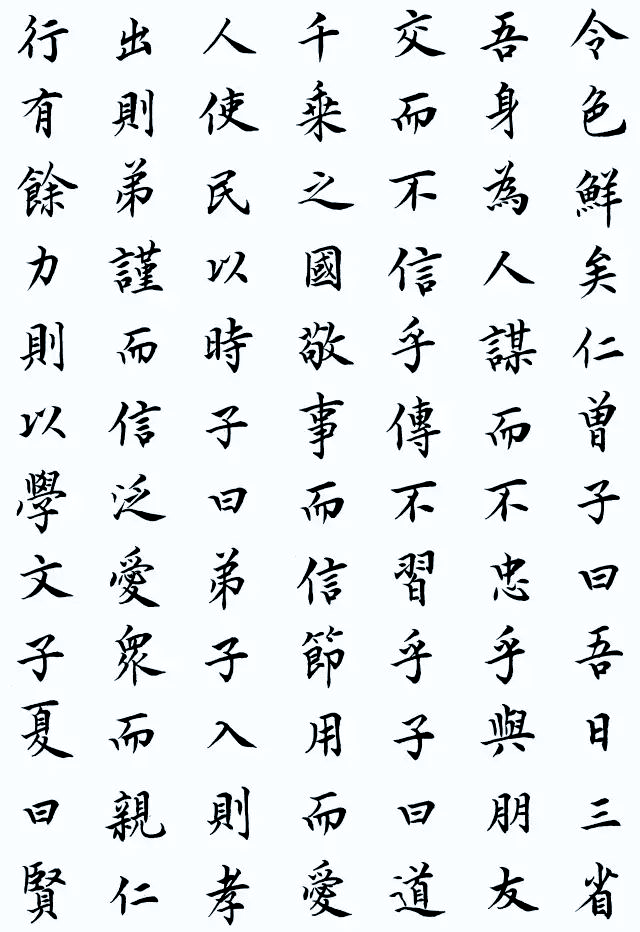 令色鮮矣仁曾子曰吾日三省
吾身為人謀而不忠乎與朋友
交而不信乎傳不習乎子曰道
千乗之國敬事而信節用而愛
人使民以時子曰弟子入則孝
出則弟謹而信泛愛眾而親仁
行有餘力則以學文子夏曰賢